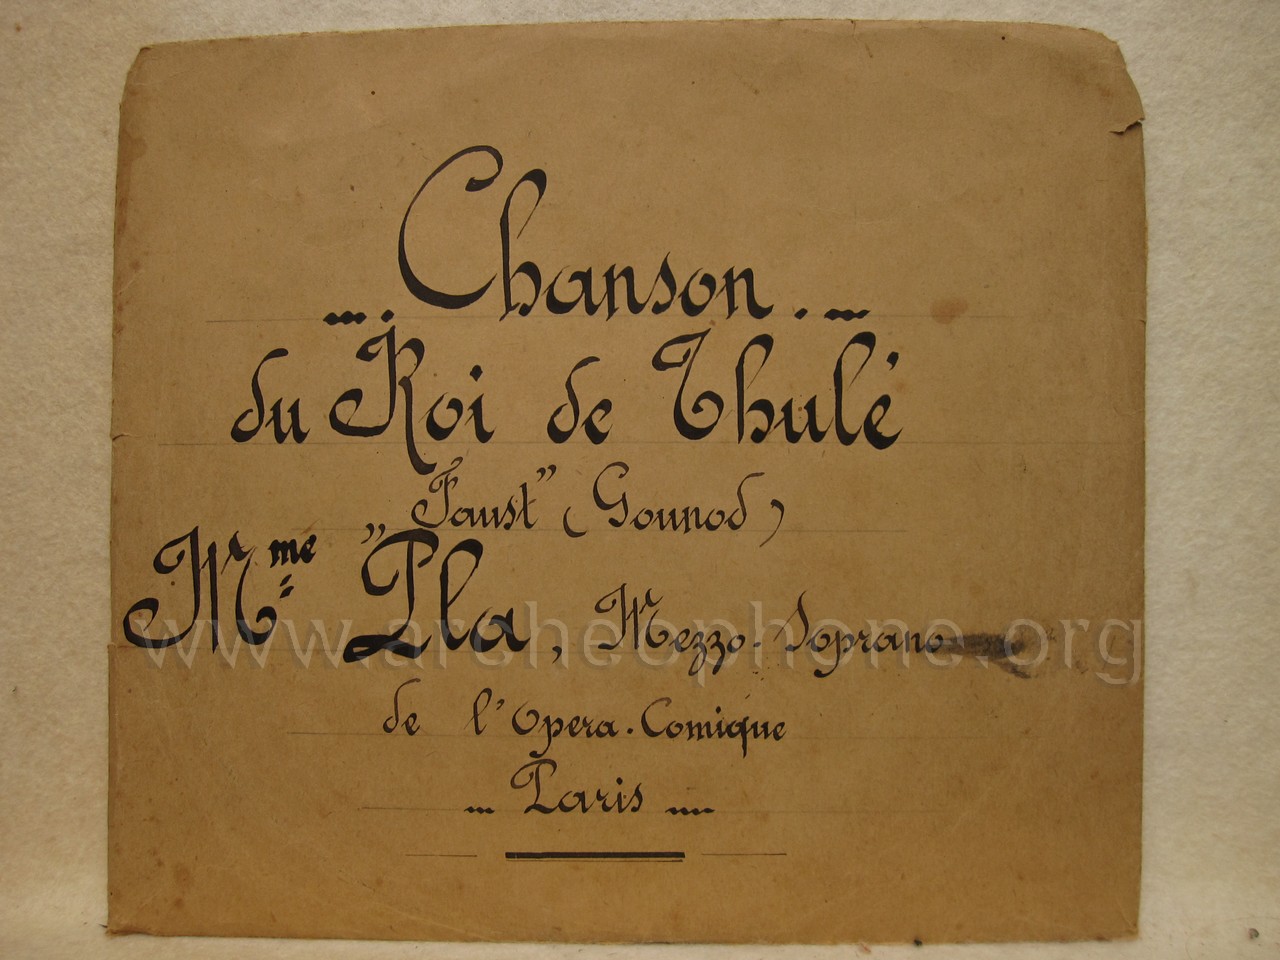 Chanson.
du Roi de Thulé
"Faust" (Gounod)
Mme Pla, Mezzo-Soprano
de l'Opera-Comique
Paris
www.archeophone.org